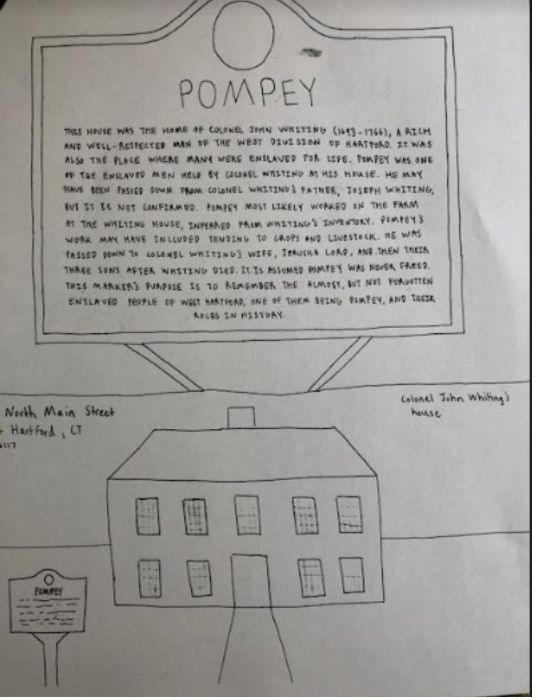 POMPEY
THIS HOUSE WAS THE HOME OF COLONEL JOHN WHITING (1693-1766), A RICH
AND WELL-RESPECTED MAN OF THE WEST DIVISION OF HARTFORD. IT WAS
ALSO THE PLACE WHERE MANY WERE ENSLAVED FOR LIFE. POMPEY WAS ONE
OF THE ENSLAVED MEN HELD BY COLONEL WHITING AT HIS HOUSE. HE MAY
HAVE BEEN PASSED DOWN FROM COLONEL WHITING'S FATHER, JOSEPH WHITING,
BUT IT IS NOT CONFIRMED. POMPEY MOST LIKELY WORKED ON THE FARM
AT THE WHITING HOUSE, INFERRED FROM WHITING'S INVENTORY. POMPEY'S
WORK MAY HAVE INCLUDED TENDING TO CROPS AND LIVESTOCK. HE WAS
PASSED DOWN TO COLONEL WHITING'S WIFE, JERUSHA LORD, AND THEN THEIR
THREE SONS AFTER WHITING DIED. IT IS ASSUMED POMPEY WAS NEVER FREED.
THIS MARKER'S PURPOSE IS TO REMEMBER THE ALMOST, BUT NOT FORGOTTEN
ENSLAVED PEOPLE OF WEST HARTFORD, ONE OF THEM BEING POMPEY, AND THEIR
ROLES IN HISTORY.
North Main Street
Hartford, CT
Colonel John Whiting's
house
POMPEY